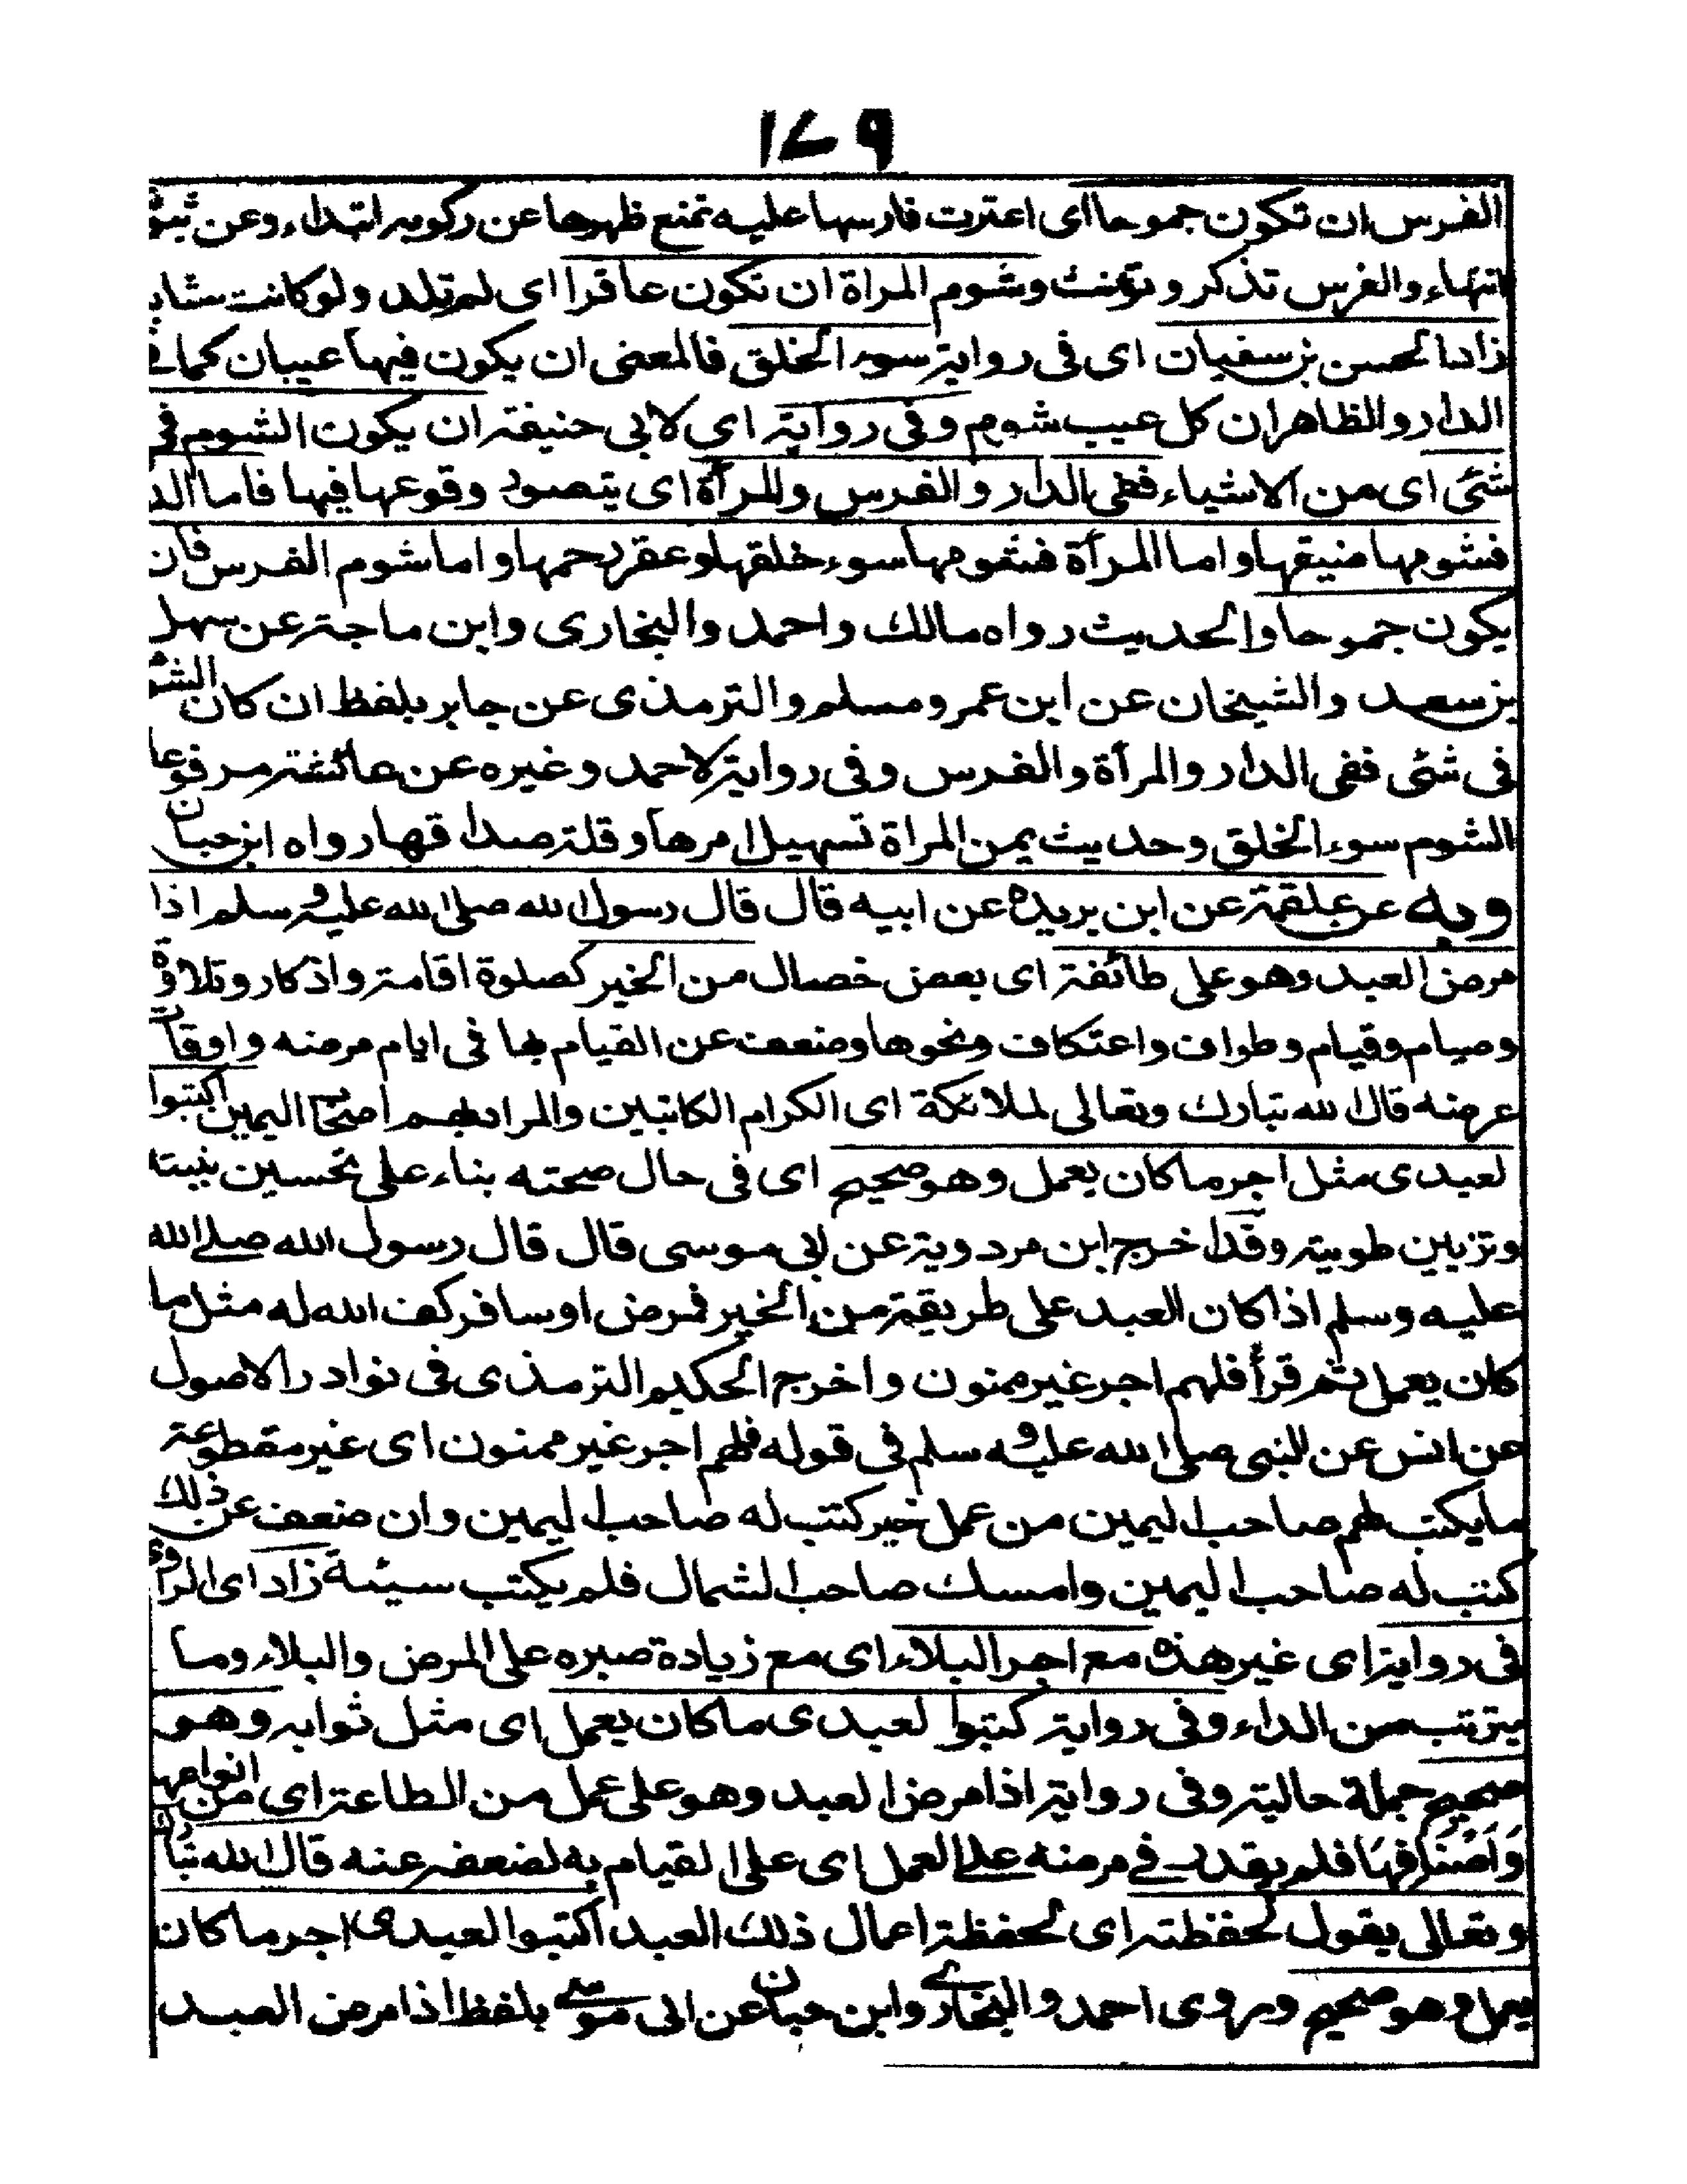 ١٧٩
الفرس ان تكون جموحا اى اعترت فارسها عليه تمنع ظهرها عن ركوبه ابتداء وعن
انتهاء والفرس تذكر وتؤنث وشوم المراة ان تكون عاقرا اى لم تلد ولو كانت شابة
زاد الحسن بن سفيان اى فى رواية سوء الخلق فالمعنى ان يكون فيها عيبان كما فى
الدار والظاهر ان كل عيب شوم وفى رواية اي لابى حنيفة ان يكون الشوم فى
شئى اى من الاشياء ففى الدار والفرس والمرأة اى يتصور وقوعها فيها فاما الد
فشومها ضيقها واما المرأة فشومها سوء خلقها وعقر رحمها واما شوم الفرس فان
يكون جموحا والحديث رواه مالك واحمد والبخارى وابن ماجة عن سهل
بن سعد والشيخان عن ابن عمر ومسلم والترمذى عن جابر بلفظ ان كان الشو
فى شئى ففى الدار والمرأة والفرس وفى رواية لاحمد وغيره عن عائشة مرفوعا
الشوم سوء الخلق وحديث يمن المراة تسهيل امرها وقلة صداقها رواه ابن حبان
وبه عن علقمة عن ابن بريده عن ابيه قال قال رسول الله صلى الله عليه وسلم اذا
مرض العبد وهو على طائفة اى بعض خصال من الخير كصلوة اقامة واذكار وتلاوة
وصيام وقيام وطواف واعتكاف ونحوها وضعف عن القيام بها فى ايام مرضه واوقات
عرضه قال الله تبارك وتعالى لملائكة اى الكرام الكاتبين والمراد بهم اصحاب اليمين اكتبوا
لعبدى مثل اجر ما كان يعمل وهو صحيح اى فى حال صحته بناء على تحسين نيته
وتزيين طويته وقد اخرج ابن مردوية عن ابى موسى قال قال رسول الله صلے الله
عليه وسلم اذا كان العبد على طريقة من الخير فمرض او سافر كف الله له مثل ما
كان يعمل ثم قرأ فلهم اجر غير ممنون واخرج الحكيم الترمذى فى نوادر الاصول
عن انس عن النبى صلى الله عليه وسلم فى قوله فلهم اجر غير ممنون اى غير مقطوعة
ما يكتب لهم صاحب اليمين من عمل خير كتب له صاحب اليمين وان ضعف عن ذلك
كتب له صاحب اليمين وامسك صاحب الشمال فلم يكتب سيئة زاد اى الراوى
فى رواية اى غير هذه مع اجر البلاء اى مع زيادة صبره على المرض والبلاء وما
يترتب من الداء وفى رواية كتبوا لعبدى ما كان يعمل اى مثل ثوابه وهو
صحيح جملة حالية وفى رواية اذا مرض العبد وهو على عمل من الطاعة اي من انواعها
وَاَصْنَافِهَا فلم يقدر فے مرضه علے العمل اى على القيام به لضعفه عنه قال الله تبارك
وتعالى يقول لحفظته اى لحفظة اعمال ذلك العبد اكتبوا لعبدى اجر ما كان
يعمل وهو صحيح وروى احمد والبخارے وابن حبان عن ابى موسے بلفظ اذا مرض العبد